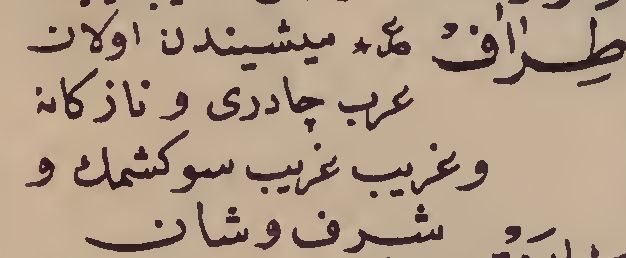 طِرَافْ میشیندن اولان
عرب چادری و نازکانه
و غریب غریب سوکشمك و
شرف و شان